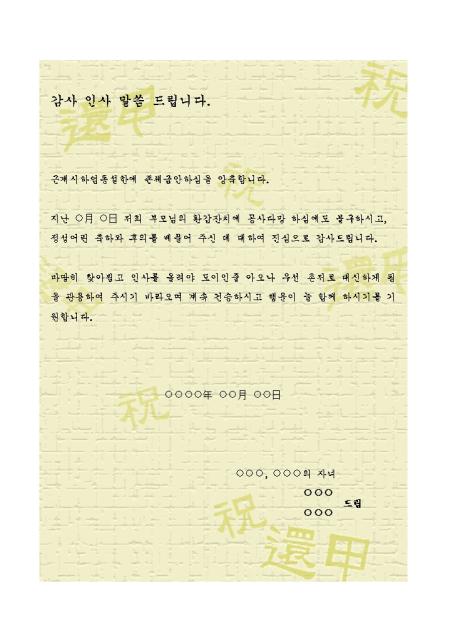 감사 인사 말씀 드립니다.
祝
還甲
祝
지난 ○月 ○日 저희 부모님의 환갑잔치에 공사다망 하심에도 불구하시고,
정성어린 축하와 후의를 베풀어 주신 데 대하여 진심으로 감사드립니다.
마땅히 찾아뵙고 인사를 올려야 도이인줄 아오나 우선 은저로 대신하게 됨
을 관용하여 주시기 바라오며 계속 건승하시고 행운이 늘 함께 하시기를 기
원합니다.
祝
○○○○年 ○○月 ○○日
○○○, ○○○의 자녀
○○○
드림
○○○
祝
還甲